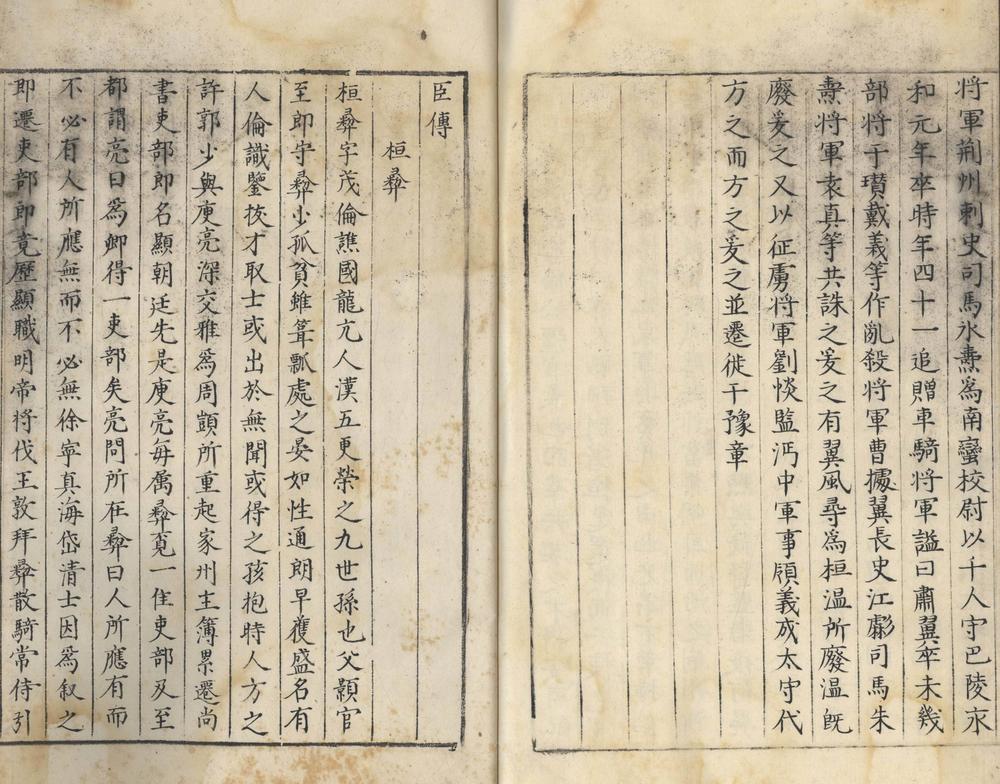 将軍荆州刺史司馬氷燾爲南蠻校尉以千人守巴陵永
和元年卒時年四十一追贈車騎將軍謚曰肅翼卒未幾
部将于瓉戴義等作亂殺将軍曹據翼長史江虨司馬朱
燾将軍袁真等共誅之爰之有翼風尋爲桓温所廢温旣
廢爰之又以征虜将軍劉惔監沔中軍事領義成太守代
方之而方之爰之並遷徙于豫章
臣傳
桓彝
桓彝字茂倫譙國龍亢人漢五更榮之九世孫也父顥官
至郎中彝少孤貧雖簞瓢處之晏如性通朗早獲盛名有
人倫識鑒拔才取士或出於無聞或得之孩抱時人方之
許郭少與庾亮深交雅爲周顗所重起家州主簿累遷尚
書吏部郎名顯朝廷先是庾亮每属彝覔一佳吏部及至
都謂亮曰爲卿得一吏部矣亮問所在彝曰人所應有而
不必有人所應無而不必無徐寧真海岱清士因爲叙之
即遷吏部郎竟歷顯職明帝将伐王敦拜彝散騎常侍引